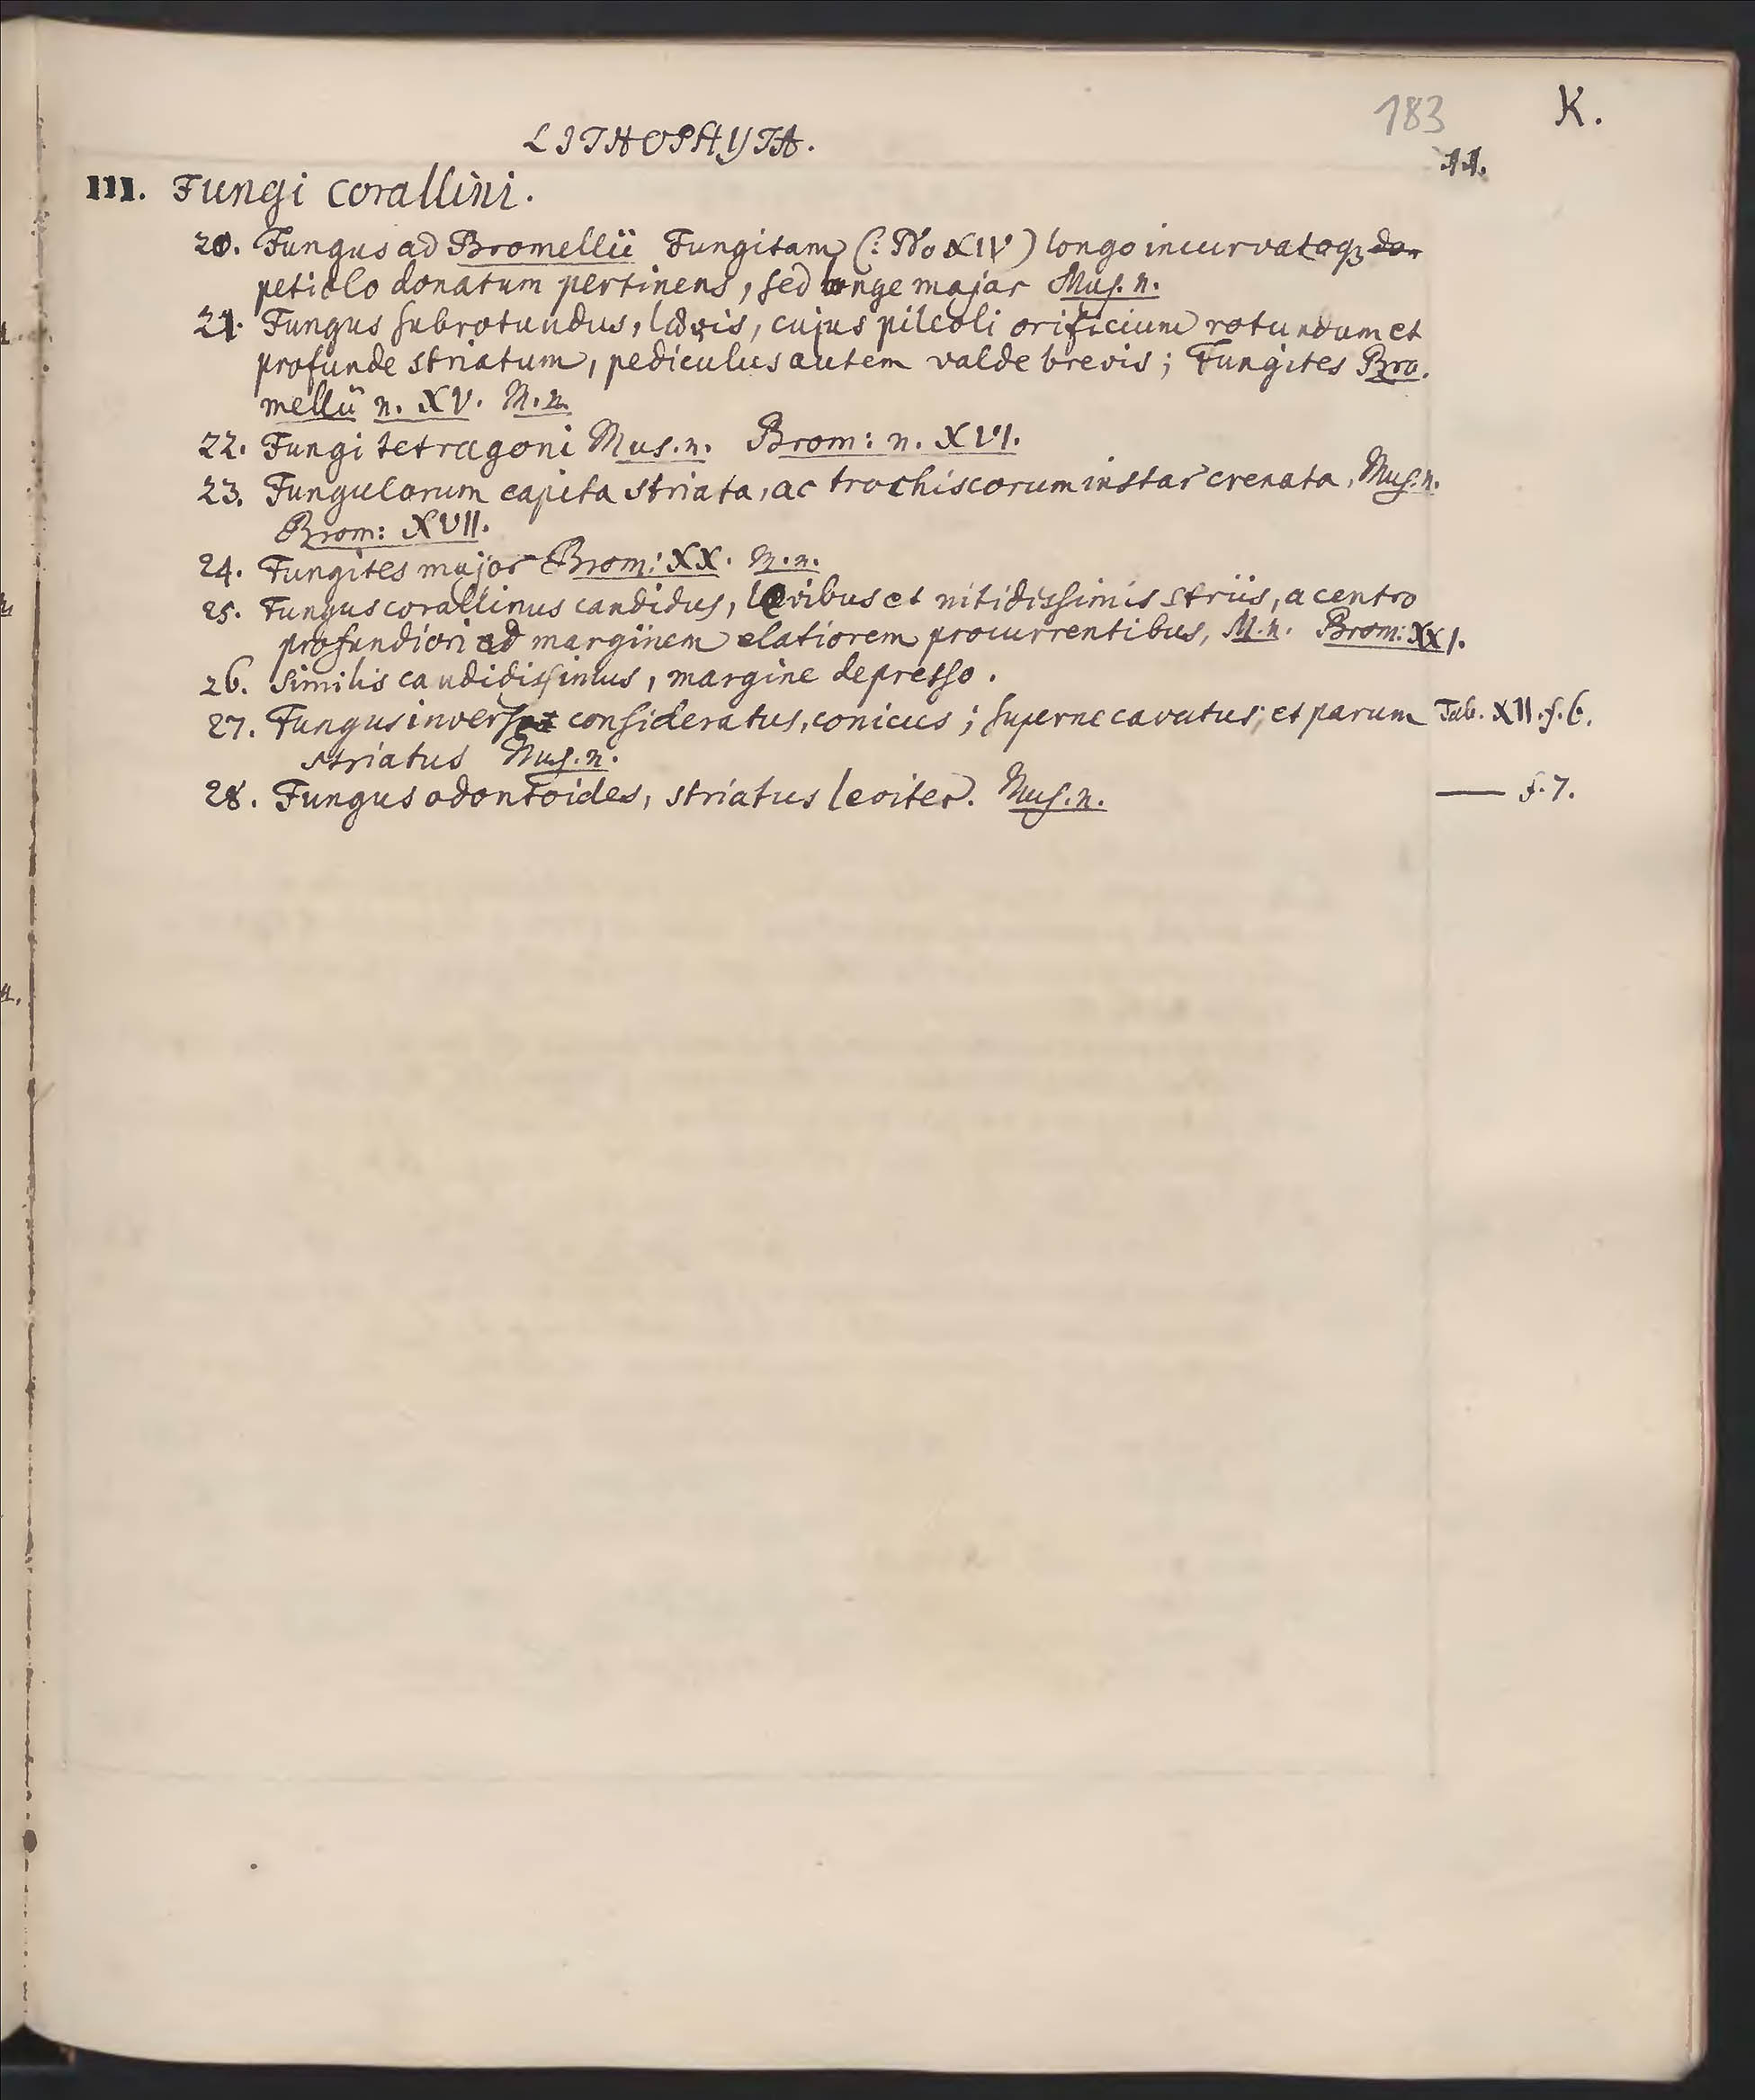 183 K.
LITHOPHYTA.
11.
III. Fungi corallini.
20. Fungus ad Bromellii Fungitam (: No XIV) longo incurvatoq; do-
petiolo donatum pertinens, sed longe major Mus. n.
21. Fungus subrotundus, lævis, cujus pileoli orificium rotundum et
profunde striatum, pediculus autem valde brevis; Fungites Bro-
mellii n. XV. M. n.
22. Fungi tetragoni Mus. n. Brom: n. XVI.
23. Fungulorum capita striata, ac trochiscorum instar crenata, Mus. n.
Brom: XVII.
24. Fungites major Brom: XX. M. n.
25. Fungus corallinus candidus, levibus et nitidissimis striis, a centro
profundiori ad marginem elatiorem procurrentibus, M. n. Brom: XXI.
26. Similis candidissimus, margine depresso.
27. Fungus inverse consideratus, conicus; superne cavatus; et parum Tab. XII. f. 6.
striatus Mus. n.
28. Fungus odontoides, striatus leviter. Mus. n. — f. 7.